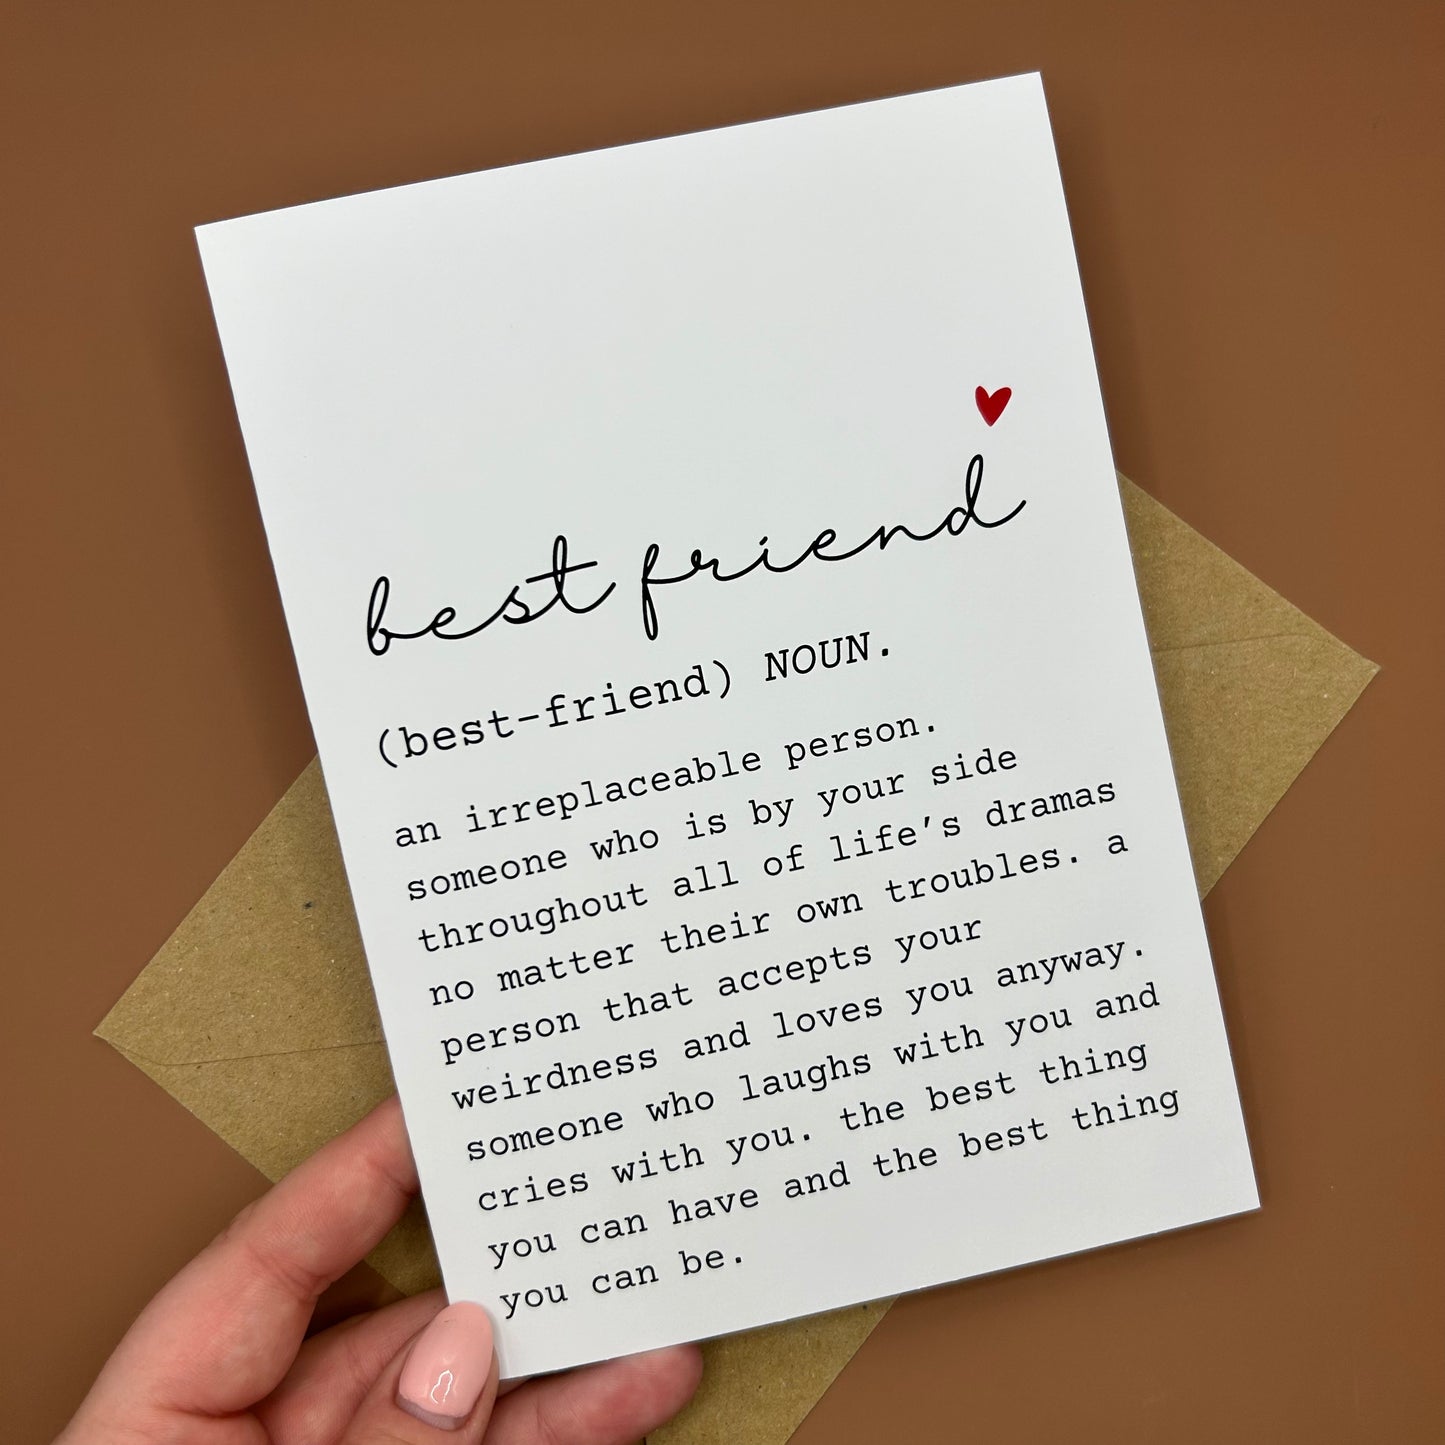 best friend
(best-friend) NOUN.
an irreplaceable person.
someone who is by your side
throughout all of life's dramas
no matter their own troubles. a
person that accepts your
weirdness and loves you anyway.
someone who laughs with you and
cries with you. the best thing
you can have and the best thing
you can be.